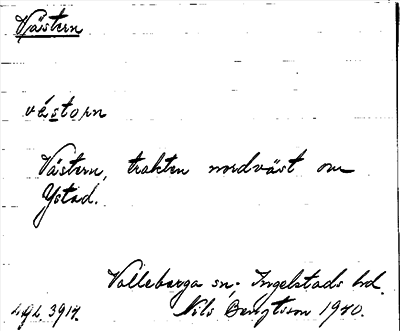 Västern
véstorn
Västern, trakten nordväst om
Ystad.
Valleberga sn; Ingelstads hd.
Nils Bengtsson 1940.
LGL 3914.